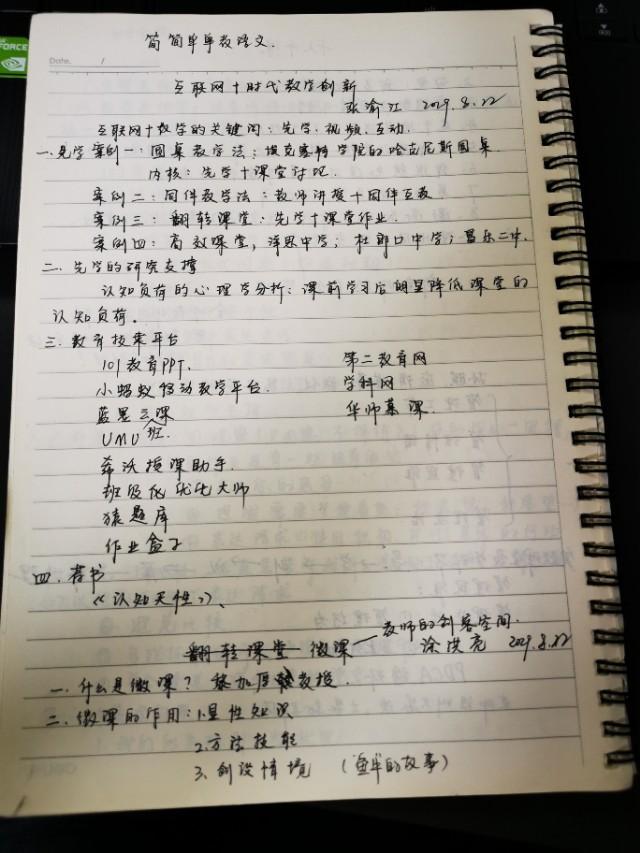 FORCE
简简单单教语文.
Date. /
互联网+时代教学创新
张渝江 2019.8.22
互联网+教学的关键词:先学、视频、互动.
一.先学案例一:圆桌教学法:埃克塞特学院的哈克尼斯圆桌.
内核:先学+课堂讨论.
案例二:同伴教学法:教师讲授+同伴互教.
案例三:翻转课堂:先学+课堂作业.
案例四:高效课堂,洋思中学;杜郎口中学;昌乐二中.
二.先学的研究支撑
认知负荷的心理学分析:课前学习后明显降低课堂的
认知负荷.
三.教育技术平台
101教育PPT. 第二教育网
小蚂蚁移动教学平台. 学科网
蓝墨云班课 华师慕课.
UMU
希沃授课助手.
班级优化大师
猿题库
作业盒子
四.荐书
《认知天性》、
翻转课堂 微课—教师的创客空间.
涂洪亮 2019.8.22
一.什么是微课?教授.
二.微课的作用:1.显性知识
2.方法技能
3.创设情境(的故事)